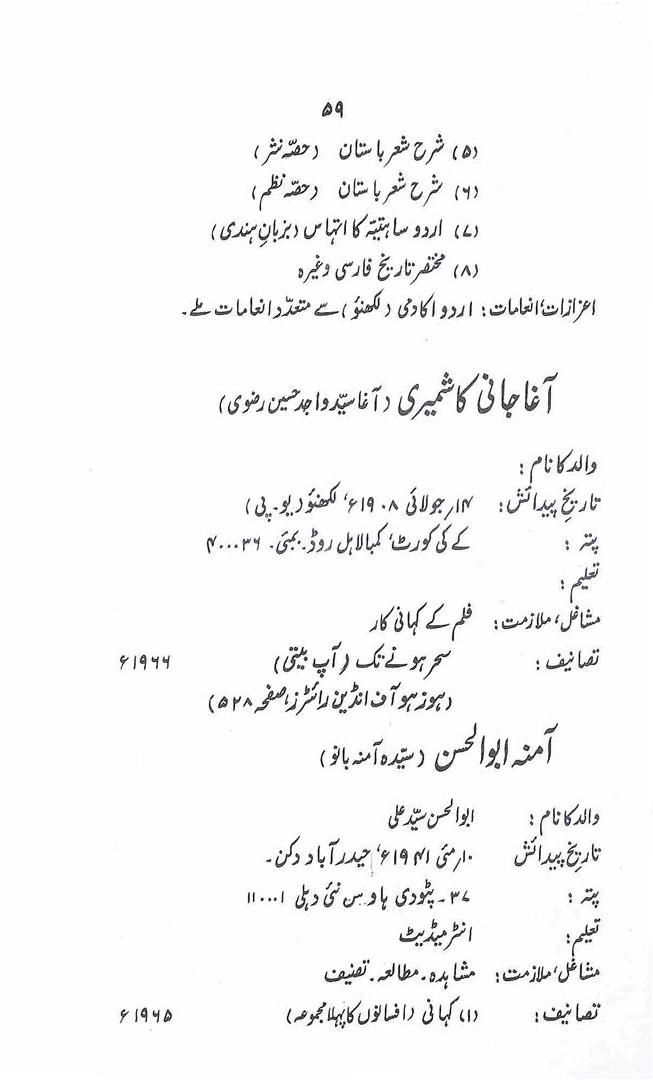 ۵۹
(۵) شرح شعر باستان (حصّہ نثر)
(۶) شرح شعر باستان (حصّہ نظم)
(۷) اردو ساہتیہ کا اتہاس (بزبانِ ہندی)
(۸) مختصر تاریخ فارسی وغیرہ
اعزازات، انعامات: اردو اکادمی (لکھنؤ) سے متعدّد انعامات ملے۔
آغا جانی کاشمیری (آغا سیّد واجد حسین رضوی)
والد کا نام:
تاریخِ پیدائش: ۱۴؍ جولائی ۱۹۰۸ء، لکھنؤ (یو۔پی)
پتہ: کے کی کورٹ، کمبالا ہل روڈ۔ بمبئی۔ ۴۰۰۰۳۶
تعلیم:
مشاغل، ملازمت: فلم کے کہانی کار
تصانیف: سحر ہونے تک (آپ بیتی) ۱۹۶۶ء
(ہوز ہو آف انڈین رائٹرز، صفحہ ۵۲۸)
آمنہ ابوالحسن (سیّدہ آمنہ بانو)
والد کا نام: ابوالحسن سیّد علی
تاریخِ پیدائش ۱۰؍ مئی ۱۹۴۱ء، حیدرآباد دکن۔
پتہ: ۳۷۔ پٹودی ہاوس نئی دہلی ۱۱۰۰۰۱
تعلیم: انٹرمیڈیٹ
مشاغل، ملازمت: مشاہدہ۔ مطالعہ۔ تصنیف
تصانیف: (۱) کہانی (افسانوں کا پہلا مجموعہ) ۱۹۶۵ء